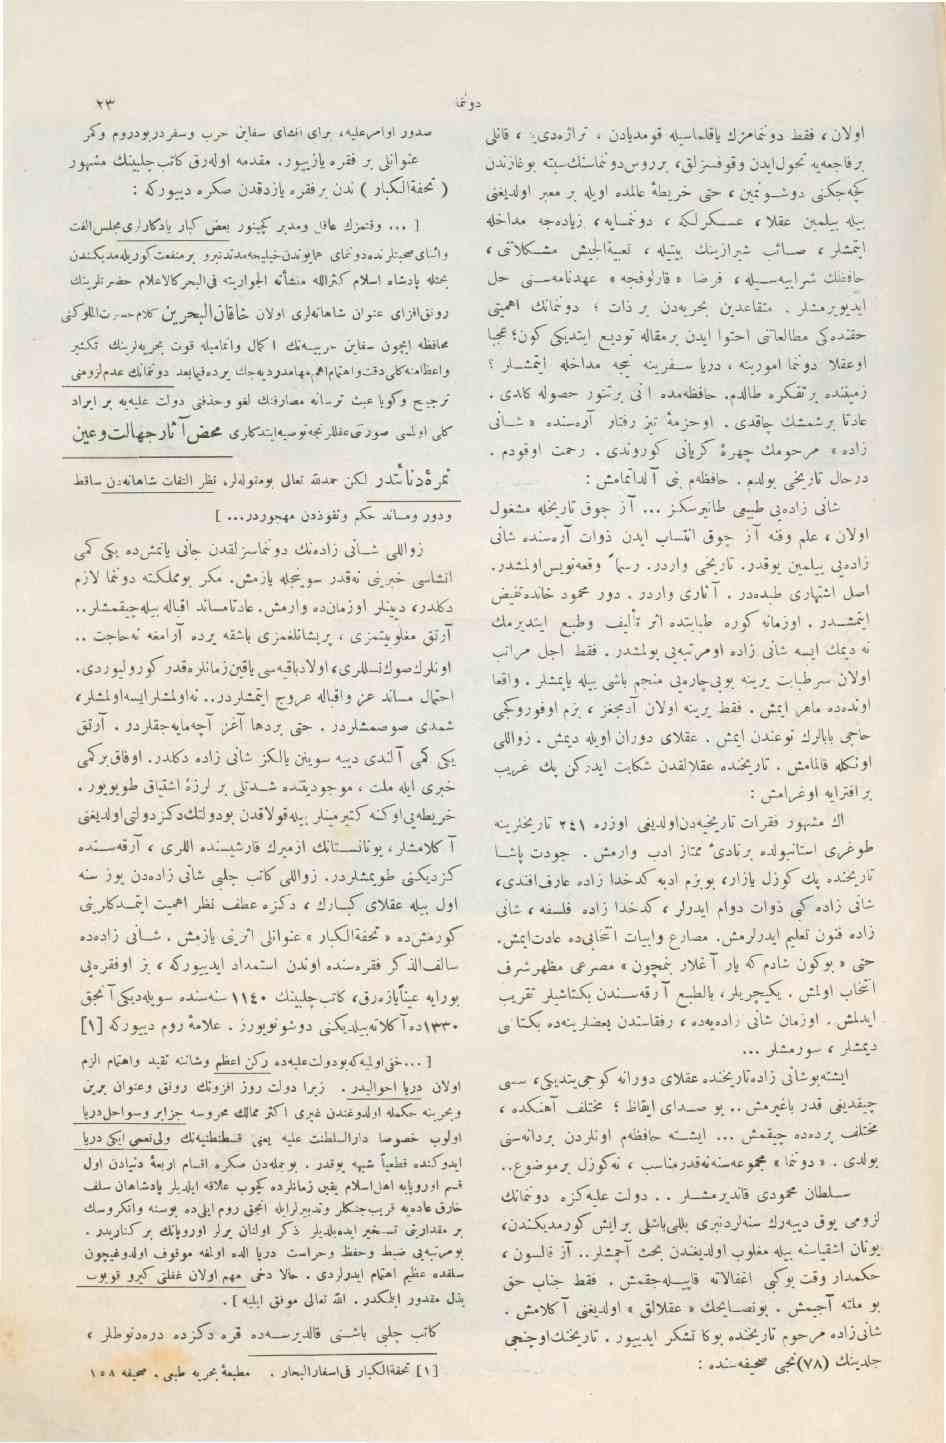 دونما
٢٣
اولان ، فقط دونمامزك ياقلماسيله قومه‌دیادن ، تراژه‌دى‌یه ، قانلى
بر فاجعه‌يه تحول ايدن وقوفسزلق، بر روس دونماسنك سبته بوغازندن
كچه‌جكنى دوشونمين ، حتى خريطهٔ عالمده اويله بر معبر اولديغنى
بيله بيلمين عقلا ، عسكرلكه ، دونمايه ، زياده‌جه مداخله
ايتمشلر ، صائب شيرازينك بيتيله ، تعبية‌الجيش مشكلاتنى ،
حافظك شرابيه‌سيله ، فرضا « قارلوفچه » عهدنامه‌سنى حل
ايديويرمشلر . متقاعدين بحريه‌دن بر ذات ؛ دونمانك اهميتى
حقنده‌كى مطالعاتنى احتوا ايدن بر مقاله توديع ايتديكى كون؛ عجبا
او عقلا دونما امورينه ، دريا سفرينه نيچه مداخله ايتمشلر ؟
زميننده بر تفكره طالدم. حافظه‌مده آنى بر تنور حصوله كلدى .
عادتا بر شمشك چاقدى . او حزمهٔ تيز رفتار آره‌سنده « شانى
زاده » مرحومك چهرهٔ كريانى كوروندى . رحمت اوقودم .
درحال تاريخى بولدم . حافظه‌م بنى آلداتمامش :
شانى زاده‌يى طبيعى طانيرسكز ... آز چوق تاريخله مشغول
اولان ، علم وفنه آز چوق انتساب ايدن ذوات آره‌سنده شانى
زاده‌يى بيلمين يوقدر. تاريخى واردر. رسماً وقعه‌نويس اولمشدر.
اصل اشتهارى طبده‌در . آثارى واردر . دور محمود خانده تفيض
ايتمشدر . اوزمانه كوره طبابتده اثر تأليف وطبع ايتديرمك
نه ديمك ايسه شانى زاده اومرتبه‌يى بولمشدر. فقط اجل مراتب
اولان سرطبابت يرينه بويى‌چاره‌يى منجم باشى بيله يايمشلر. واقعا
اونده‌ده ماهر ايمش . فقط يرينه اولان آدمجغز ، بزم اوفوروكجى
حاجى بابالرك نوعندن ايمش . عقلاى دوران اويله ديمش . زواللى
اونكله قالمامش . تاريخنده عقلالقدن شكايت ايدركن پك غريب
بر افترايه اوغرامش :
اك مشهور فقرات تاريخيه‌دن اولديغى اوزره ٢٤١ تاريخلرينه
طوغرى استانبولده بر نادىٔ ممتاز ادب وارمش . جودت پاشا
تاريخنده پك كوزل يازار، بو بزم ادبه كدخدا زاده عارف افندى،
شانى زاده كبى ذوات دوام ايدرلر ، كدخدا زاده فلسفه ، شانى
زاده فنون تعليم ايدرلرمش. مصارع وابيات انتخابى‌ده عادت ايمش.
حتى « بوكون شادم كه يار آغلار بنمچون » مصرعى مظهر شرف
انتخاب اولمش . يكيچريلر، بالطبع آرقه‌سندن بكتاشيلر تقريب
ايدلمش. اوزمان شانى زاده‌يه‌ده ، رفقاسندن بعضلرينه‌ده بكتاشى
ديمشلر ، سورمشلر ...
ايشته بو شانى زاده تاريخنده عقلاى دورانه كوجى يتديكى، سسى
چيقديغى قدر باغيرمش .. بو صداى ايقاظ ؛ مختلف آهنكده ،
مختلف پرده‌ده چيقمش ... ايشته حافظه‌م اونلردن بردانه‌سنى
بولدى . « دونما » مجموعه‌سنه نه‌قدر مناسب ، نه كوزل بر موضوع..
سلطان محمودى قانديرمشلر .. دولت عليه‌كزه دونمانك
لزومى يوق ديه‌رك سنه‌لردنبرى بللى‌باشلى بر ايش كورمديكندن،
يونان اشقياسنه بيله مغلوب اولديغندن بحث آچمشلر .. آز قالسون ،
حكمدار وقت بوكبى اغفالاته قاپيله‌جقمش . فقط جناب حق
بو ملته آجيمش . بو نصايحك « عقلالق » اولديغنى آكلامش .
شانى زاده مرحوم تاريخنده بوكا تشكر ايدييور . تاريخنك اوچنجى
جلدينك (٧٨)نجى صحيفه‌سنده :
صدور اوامر عليه ، براى انشاى سفاين حرب وسفر در بودروم وكمر
عنوانلى بر فقره يازييور. مقدمه اوله‌رق كاتب چلبينك مشهور
( تحفة‌الكبار ) ندن بر فقره يازدقدن صكره دييوركه :
[ ... وقتمزك عاقل ومدبر كچينور بعض كبار يادكارلرى مجلس الفت
واثناى صحبتلرنده دونماى همايوندن خيليجه مدتدنبرو بر منفعت كوريله‌مديكندن
بحثله پادشاه اسلام كثرالله منشآته الجوارية فى‌البحر كالاعلام حضرتلرينك
رونق‌افزاى عنوان شاهانه‌لرى اولان خاقان‌البحرين كلام حسرت‌الملوكنى
محافظه ايچون سفاين حربيه‌نك اكمال واتمامیله قوت بحريه‌لرينك تكثير
واعظامنه كلى دقت واهتمام اهم مهامدر ديه‌جك يرده فيمابعد دونمانك عدم لزومنى
ترجيح وكويا عبث ترسانه مصارفنك لغو وحذفنى دولت عليه‌يه بر ايراد
كلى اولمسى صورتى عقللرنجه توصيه ايتدكلرى محض آثار جهالت وعين
ثمرهٔ دنائتدر لكن حمدلله تعالى بو مقوله‌لر، نظر التفات شاهانه‌دن ساقط
ودور ومساند حكم ونفوذدن مهجوردر... ]
زواللى شانى زاده‌نك دونماسزلقدن جانى ياتمش‌ده يكى كمى
انشاسى خبرينى نه‌قدر سوينجله يازمش. مكر بو مملكته دونما لازم
دكلدر، دينلر اوزمان‌ده وارمش. عادتا مساند اقباله بيله چيقمشلر..
آرتق مغلوبيتمزى ، پريشانلغمزى باشقه يرده آرامغه نه حاجت ..
اونلرك صوك نسللرى، اولاد باقيه‌سى ياقين زمانلره‌قدر كورولیوردى.
احتمال مساند عز واقباله عروج ايتمشلردر.. نه اولمشلر ايسه اولمشلر،
شمدى صوصمشلردر . حتى بردها آغز آچه‌مايه‌جقلردر . آرتق
يكى كمى آلندى ديه سوينن يالكز شانى زاده دكلدر. اوفاق بر كمى
خبرى ايله ملت ، موجوديتنده شدتلى بر لرزهٔ اشتياق طويويور .
خريطه‌يى اوكنه كتيرمينلر بيله قولاقدن بو دولتك دكز دولتى اولديغنى
آكلامشلر، يونانستانك ازميرك قارشيسنده اللرى ، آرقه‌سنده
كزديكنى طويمشلردر. زواللى كاتب چلبى شانى زاده‌دن يوز سنه
اول بيله عقلاى كبارك ، دكزه عطف نظر اهميت ايتمدكلرينى
كورمش‌ده « تحفة‌الكبار » عنوانلى اثرينى يازمش . شانى زاده‌ده
سالف‌الذكر فقره‌سنده اوندن استمداد ايدييوركه ، بز اوفقره‌يى
بورايه عيناً يازه‌رق، كاتب چلبينك ١١٤٠ سنه‌سنده سويله‌ديكى آنجق
١٣٣٠ده آكلاته‌بيلديكنى دوشونويورز . علامهٔ روم دييوركه [١]
[ ...خفى اوليه كه بو دولت عليه‌ده ركن اعظم وشاننه تقيد واهتمام الزم
اولان دريا احواليدر . زيرا دولت روز افزونك رونق وعنوان برين
وبحرينه حكمله اولدوغندن غيرى اكثر ممالك محروسه جزاير وسواحل دريا
اولوب خصوصا دارالسلطنت عليه يعنى قسطنطنيه‌نك ولى نعمى ايكى دريا
ايدوكنده قطعياً شبهه يوقدر . بو جمله‌دن صكره اقسام اربعهٔ دنيادن اول
قسم اوروپايه اهل اسلام يقين زمانلرده كچوب علاقه ايلديلر پادشاهان سلف
خارق عاده‌يه قريب جنكلر وتدبيرلر ايله آنجق روم ايلى‌ده بوسنه وانكروسك
بر مقدارينى تسخير ايده‌بلديلر ذكر اولنان يرلر اوروپانك بر كناريدر .
بو مرتبه‌يى ضبط وحفظ وحراست دريا الده اولمغه موقوف اولدوغيچون
سلفده عظيم اهتمام ايدرلردى . حالا دخى مهم اولان غفلتى كيرو قويوب
بذل مقدور ايلمكدر. الله تعالى موفق ايليه ] .
كاتب چلبى باشنى قالديرسه‌ده قره دكزده دره‌دنوطلر ،
[١] تحفة‌الكبار فى اسفارالبحار . مطبعهٔ بحريه طبعى . صحيفه ١٥٨